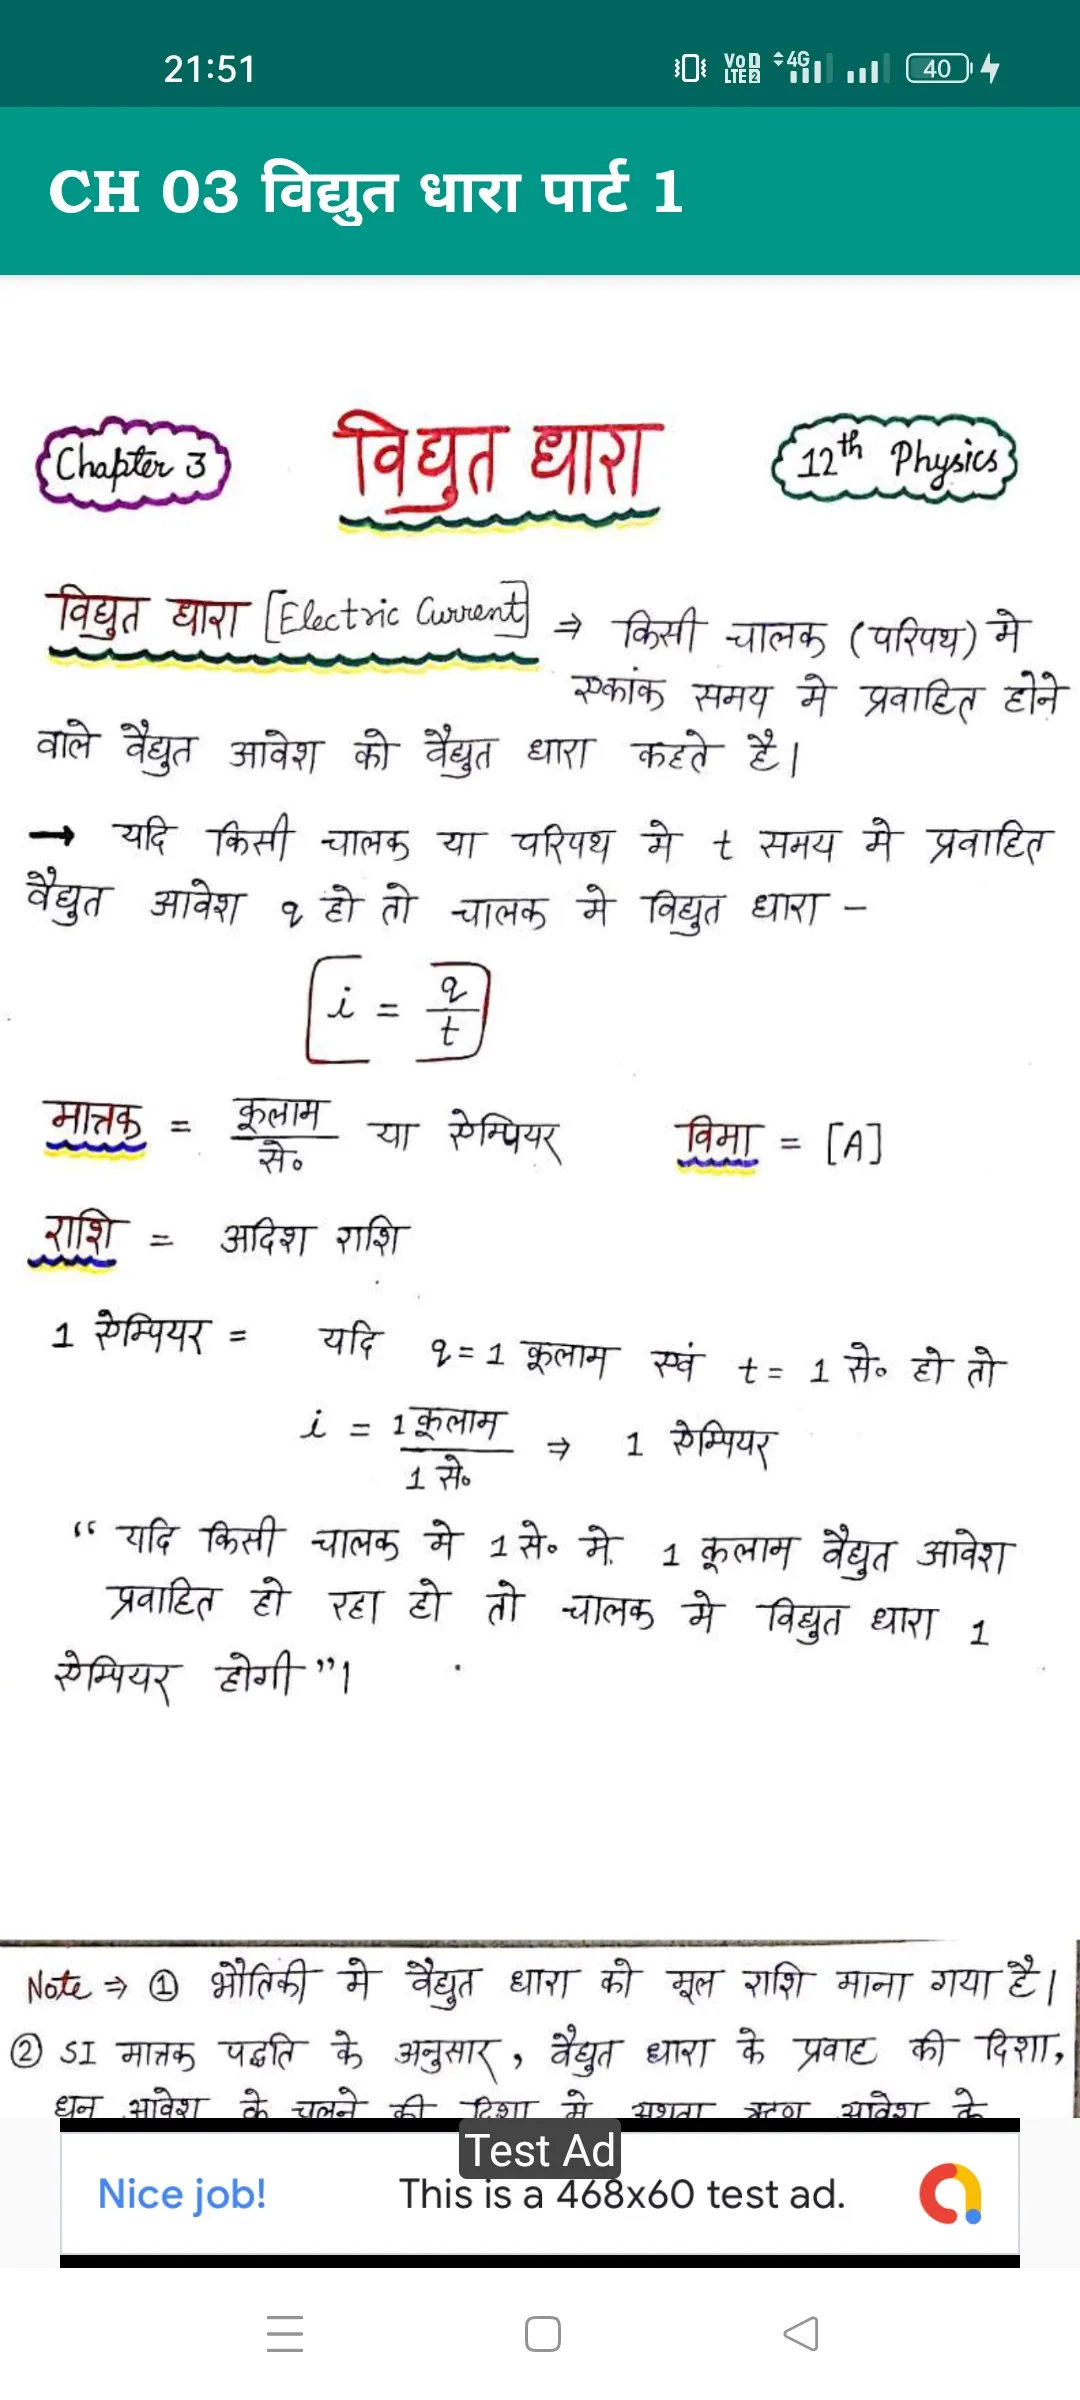 21:51
Vo 1 LTE 2 4G 40
CH 03 विद्युत धारा पार्ट 1
Chapter 3 विद्युत धारा 12th Physics
विद्युत धारा [Electric Current] ⇒ किसी चालक (परिपथ) मे
एकांक समय मे प्रवाहित होने
वाले वैद्युत आवेश को वैद्युत धारा कहते है।
→ यदि किसी चालक या परिपथ मे t समय मे प्रवाहित
वैद्युत आवेश q हो तो चालक मे विद्युत धारा –
i = q/t
मात्रक = कूलाम/से० या ऐम्पियर विमा = [A]
राशि = अदिश राशि
1 ऐम्पियर = यदि q = 1 कूलाम एवं t = 1 से० हो तो
i = 1 कूलाम/1 से० ⇒ 1 ऐम्पियर
“ यदि किसी चालक मे 1 से० मे 1 कूलाम वैद्युत आवेश
प्रवाहित हो रहा हो तो चालक मे विद्युत धारा 1
ऐम्पियर होगी ”।
Note ⇒ ① भौतिकी मे वैद्युत धारा को मूल राशि माना गया है।
② SI मात्रक पद्धति के अनुसार, वैद्युत धारा के प्रवाह की दिशा,
धन आवेश के चलने की दिशा मे अथवा ऋण आवेश के
Test Ad
Nice job! This is a 468x60 test ad.